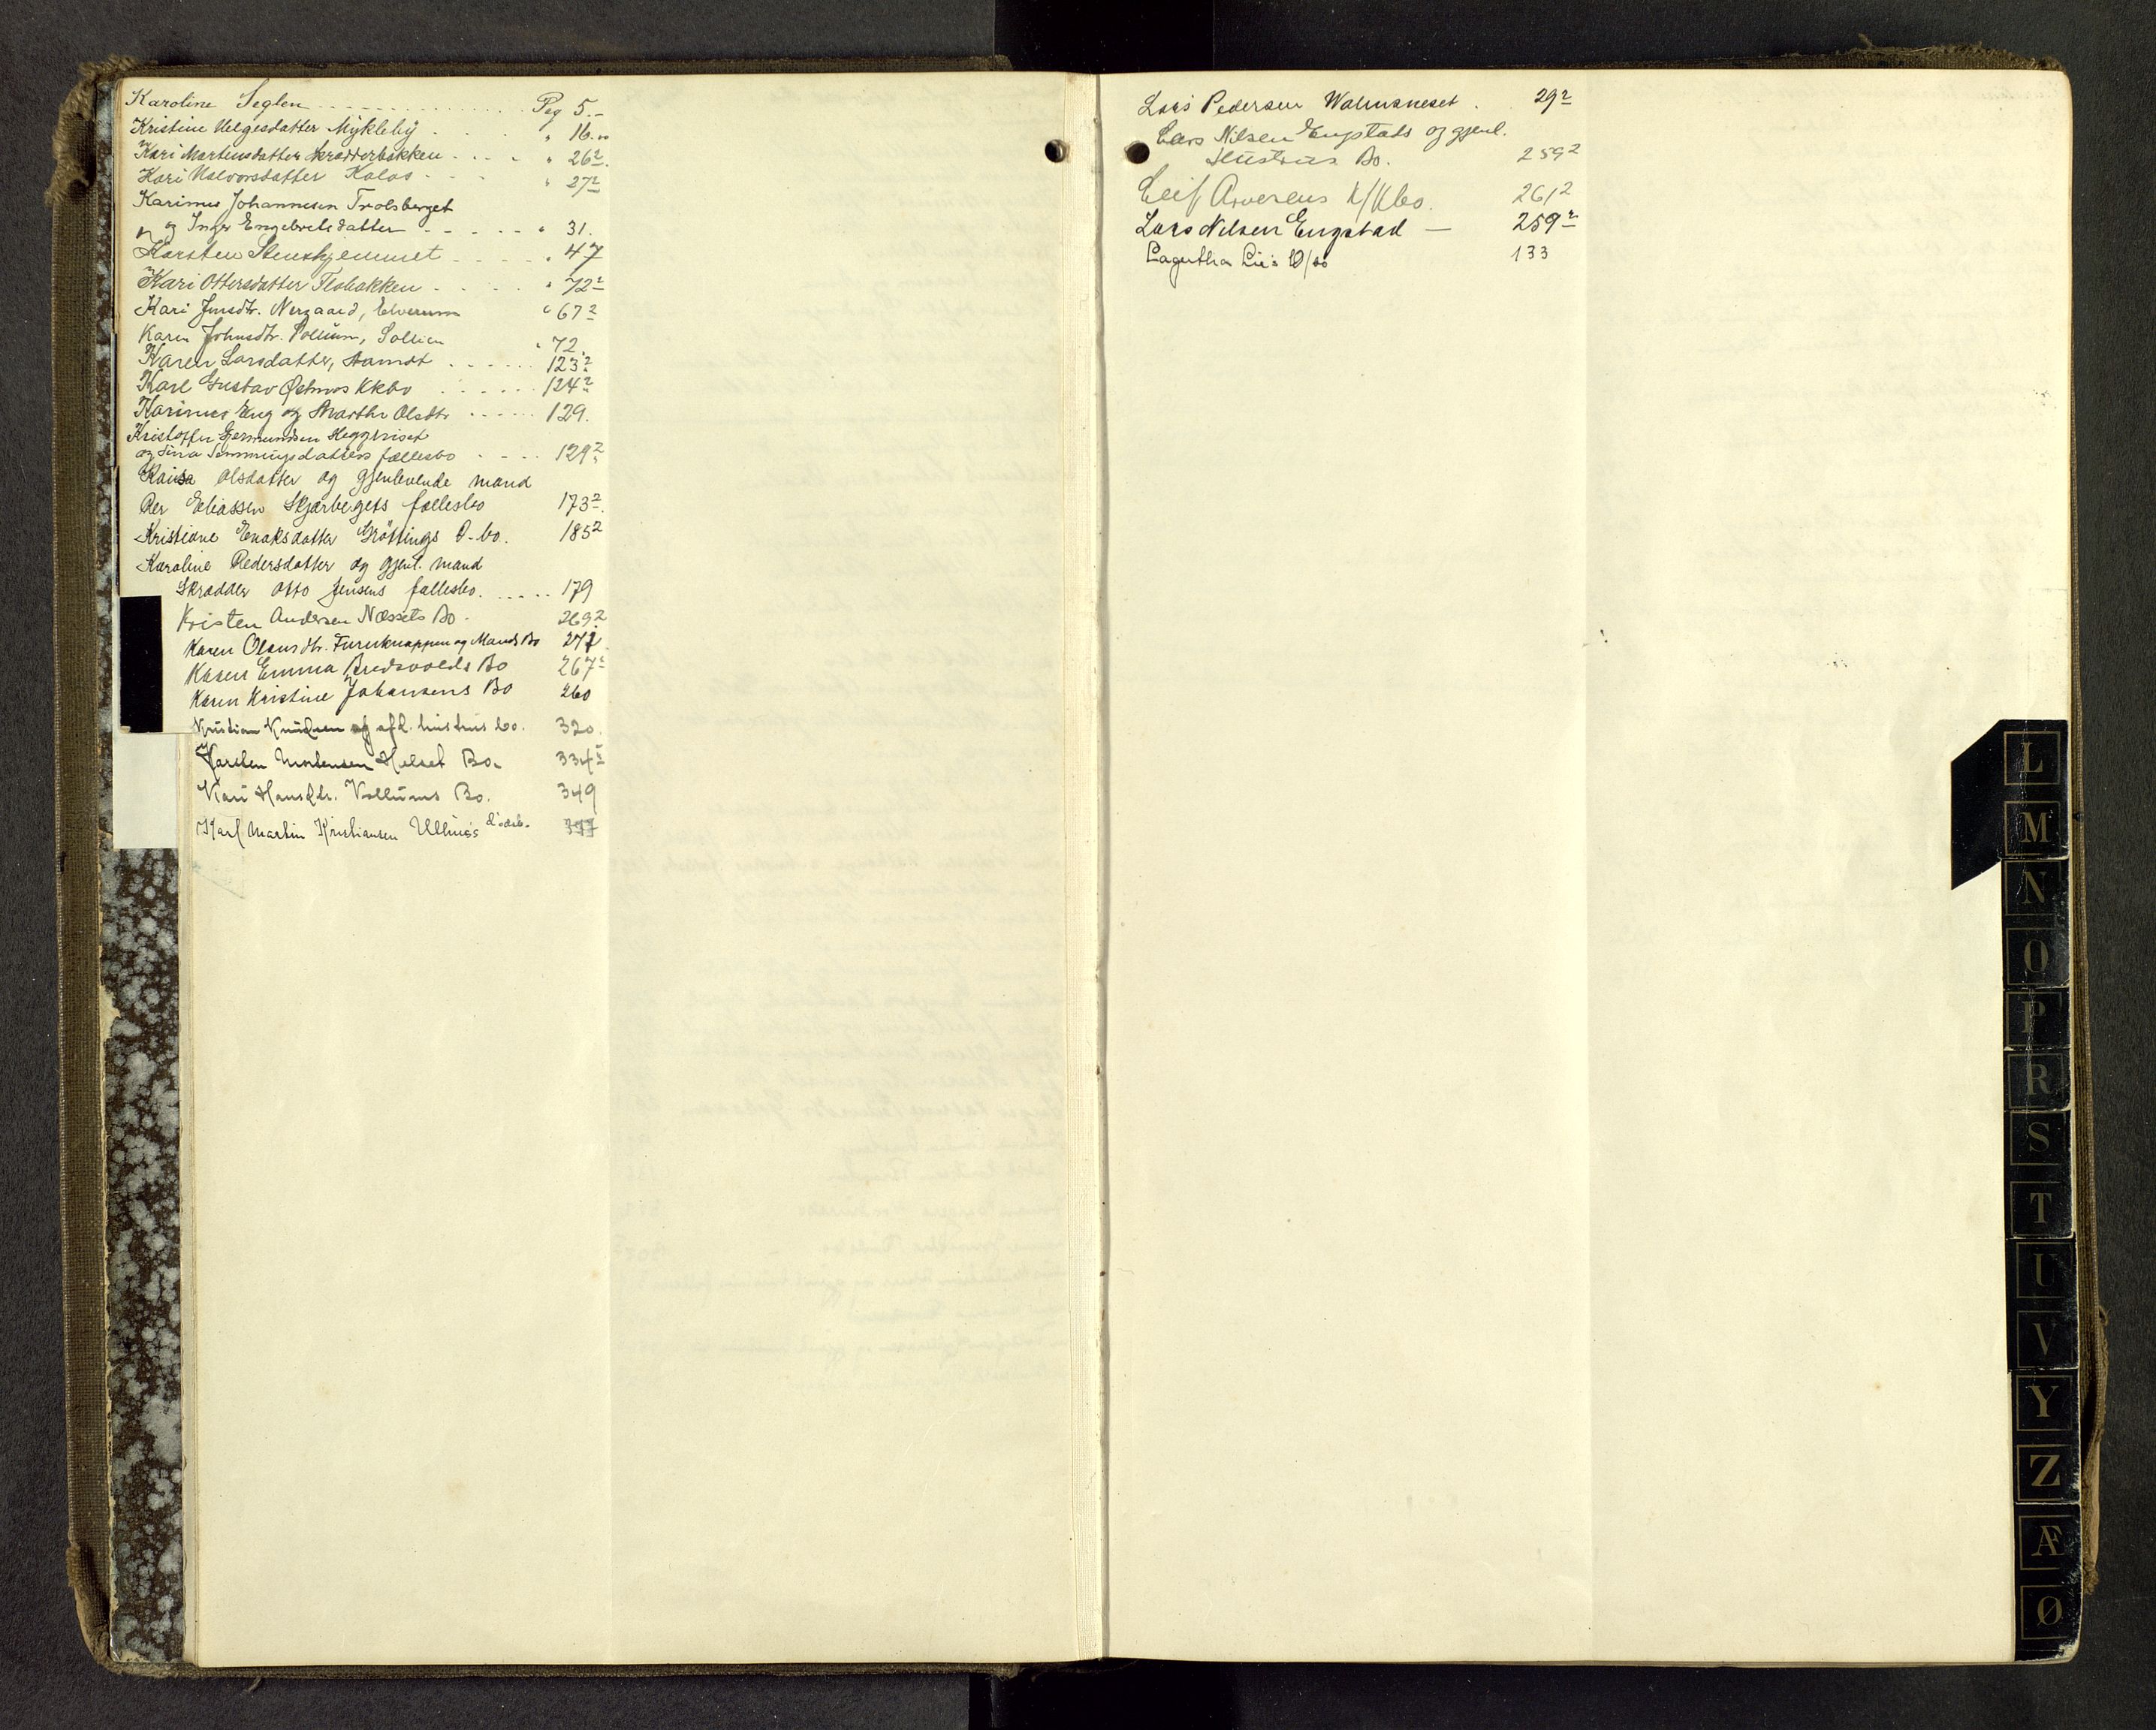 Karoline Seglen Pag 5.-
Kristine Helgesdatter Mykleby " 16.
Kari Mortensdatter Skrædderbakken " 26 2
Kari Halvorsdatter Kolos " 27 2
Karinus Johannesen Trolsberget
og Inger Engebretsdatter " 31.
Karsten Stenskjemmet " 47
Kari Ottersdatter Flobakken " 72 2
Kari Jensdtr. Nergaard, Elverum " 67 2
Karen Johnsdtr. Sollien " 72.
Karen Larsdatter, Aamot 123 2
Karl Gustav Østmos Kkbo 124 2
Karinus Eng og Marthe Olsdtr 129.
Kristoffer Gjermundsen Heggeriset
og Sina Semmingsdatters fællesbo 129 2
Kaisa Olsdatter og gjenlevende mand
Per Eliassen Skjærbergets fællesbo 173 2
Kristiane Enoksdatter Grøttings D-bo. 185 2
Karoline Pedersdatter og gjenl. mand
Skrædder Otto Jensens fællesbo. 179
Kristen Andersen Næssets Bo. 269 2
Karen Olausdtr. Furuknappen og Mands Bo
Karen Emma Bredvolds Bo 267 2
Karen Kristine Johansens Bo 260
Kristian Knudsen og afd. hustrus bo. 320.
Karsten Mortensen Holset Bo. 334
Kari Hansdtr. Vollums Bo. 349
Karl Martin Kristiansen Ullnæs dødsb. 377
Lars Pedersen Walmsneset. 29 2
Lars Nilsen Engstads og gjenl.
Hustrus Bo. 259 2
Leif Arverens K/Kbo. 261 2
Lars Nilsen Engstad — 259 2
Lagertha Lie's D/bo 133
L
M
N
O
P
R
S
T
U
V
Y
Z
Æ
Ø